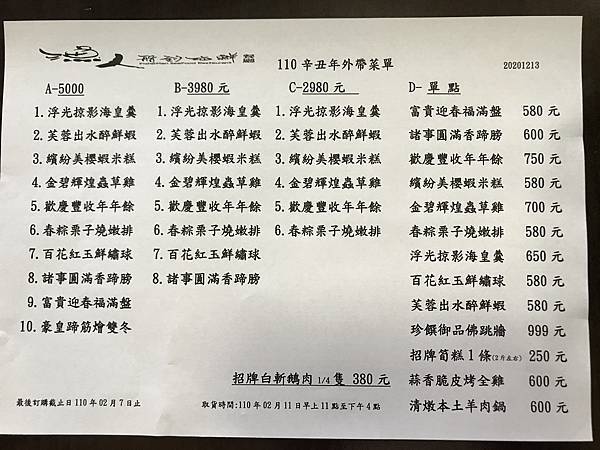 漁人
110 辛丑年外帶菜單
20201213
A-5000
1. 浮光掠影海皇羹
2. 芙蓉出水醉鮮蝦
3. 繽紛美櫻蝦米糕
4. 金碧輝煌蟲草雞
5. 歡慶豐收年年餘
6. 春粽栗子燒嫩排
7. 百花紅玉鮮繡球
8. 諸事圓滿香蹄膀
9. 富貴迎春福滿盤
10. 豪皇蹄筋燴雙冬
B-3980 元
1. 浮光掠影海皇羹
2. 芙蓉出水醉鮮蝦
3. 繽紛美櫻蝦米糕
4. 金碧輝煌蟲草雞
5. 歡慶豐收年年餘
6. 春粽栗子燒嫩排
7. 百花紅玉鮮繡球
8. 諸事圓滿香蹄膀
C-2980 元
1. 浮光掠影海皇羹
2. 芙蓉出水醉鮮蝦
3. 繽紛美櫻蝦米糕
4. 金碧輝煌蟲草雞
5. 歡慶豐收年年餘
6. 春粽栗子燒嫩排
D- 單 點
富貴迎春福滿盤 580 元
諸事圓滿香蹄膀 600 元
歡慶豐收年年餘 750 元
繽紛美櫻蝦米糕 580 元
金碧輝煌蟲草雞 700 元
春粽栗子燒嫩排 580 元
浮光掠影海皇羹 650 元
百花紅玉鮮繡球 580 元
芙蓉出水醉鮮蝦 580 元
珍饌御品佛跳牆 999 元
招牌筍糕 1 條(2斤左右) 250 元
蒜香脆皮烤全雞 600 元
清燉本土羊肉鍋 600 元
招牌白斬鵝肉 1/4 隻 380 元
最後訂購截止日 110 年 02 月 7 日止
取貨時間:110 年 02 月 11 日早上 11 點至下午 4 點